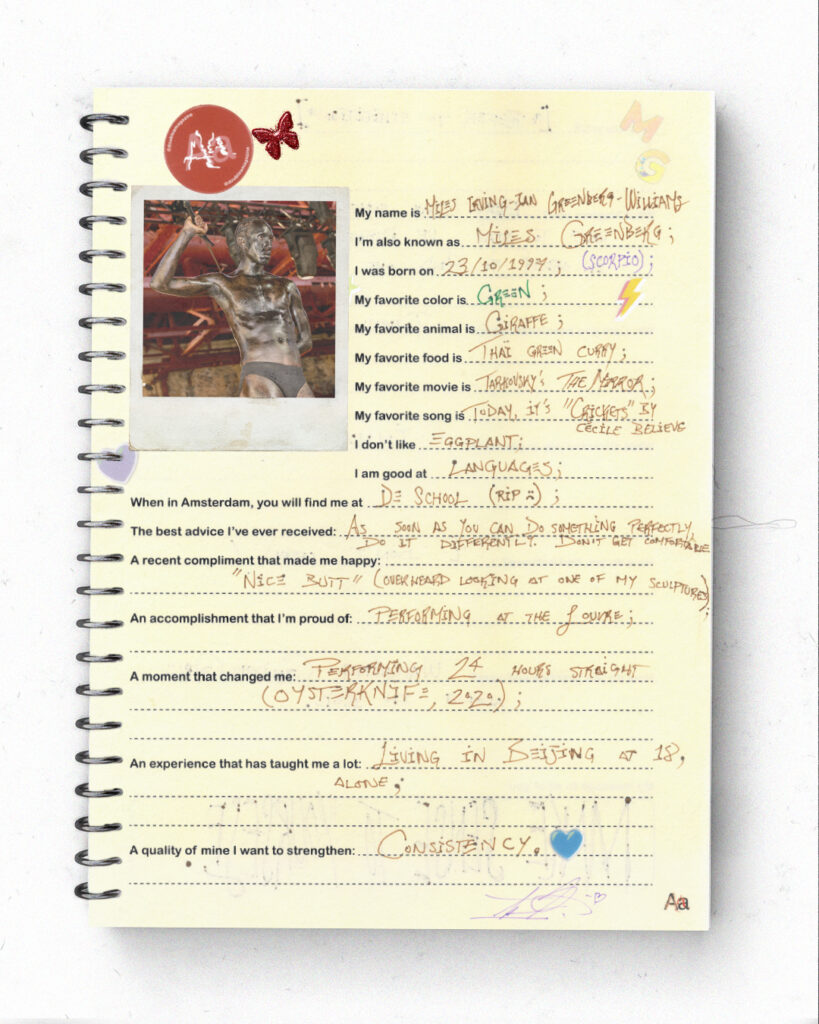 M
G
My name is Miles Irving-Jan Greenberg-Williams
I'm also known as Miles Greenberg;
I was born on 23/10/1997; (Scorpio);
My favorite color is Green;
My favorite animal is Giraffe;
My favorite food is Thaï green curry;
My favorite movie is Tarkovsky's The Mirror;
My favorite song is Today, it's "Crickets" by
Cecile Believe
I don't like Eggplant;
I am good at Languages;
When in Amsterdam, you will find me at De School (RIP );
The best advice I've ever received: As soon as you can do something perfectly,
do it differently. Don't get comfortable
A recent compliment that made me happy:
"Nice butt" (overheard looking at one of my sculptures);
An accomplishment that I'm proud of: Performing at the Louvre;
A moment that changed me: Performing 24 hours straight
(OYSTERKNIFE, 2020);
An experience that has taught me a lot: Living in Beijing at 18,
alone;
A quality of mine I want to strengthen: Consistency.
Aa